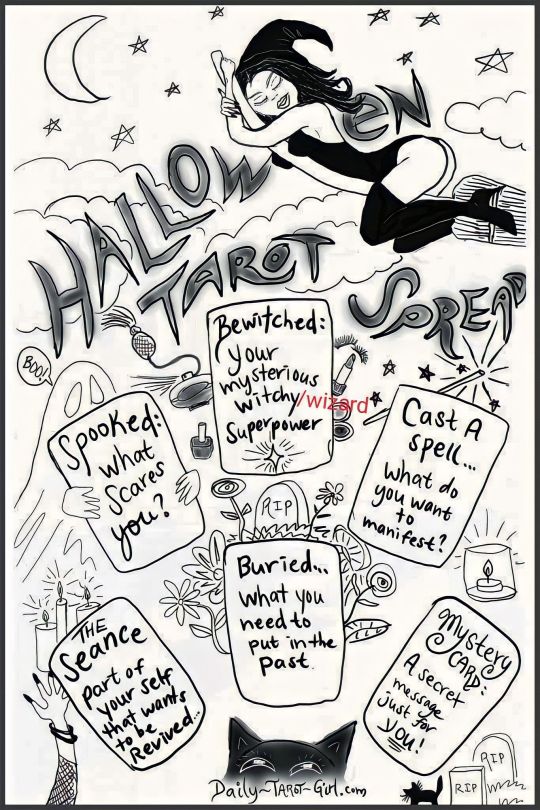 HALLOWEEN
TAROT
SPREAD
BOO!
Bewitched:
your
mysterious
witchy/wizard
Superpower
Spooked:
what
scares
you?
Cast A
spell...
what do
you want
to
manifest?
RIP
Buried...
what you
need to
put in the
past.
THE
Seance
part of
your self
that wants
to be
Revived...
Mystery
CARD:
A secret
message
just for
you!
RIP
RIP
Daily~TAROT~Girl.com